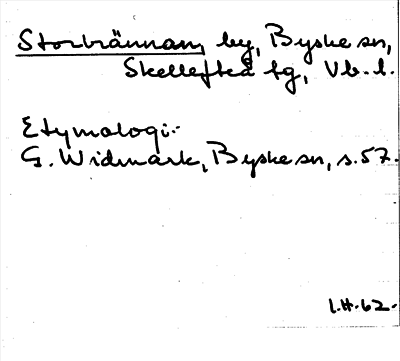 Storbrännan, by, Byske sn,
Skellefteå tg, Vb. l.
Etymologi:
G. Widmark, Byske sn, s. 57.
I.H.62.